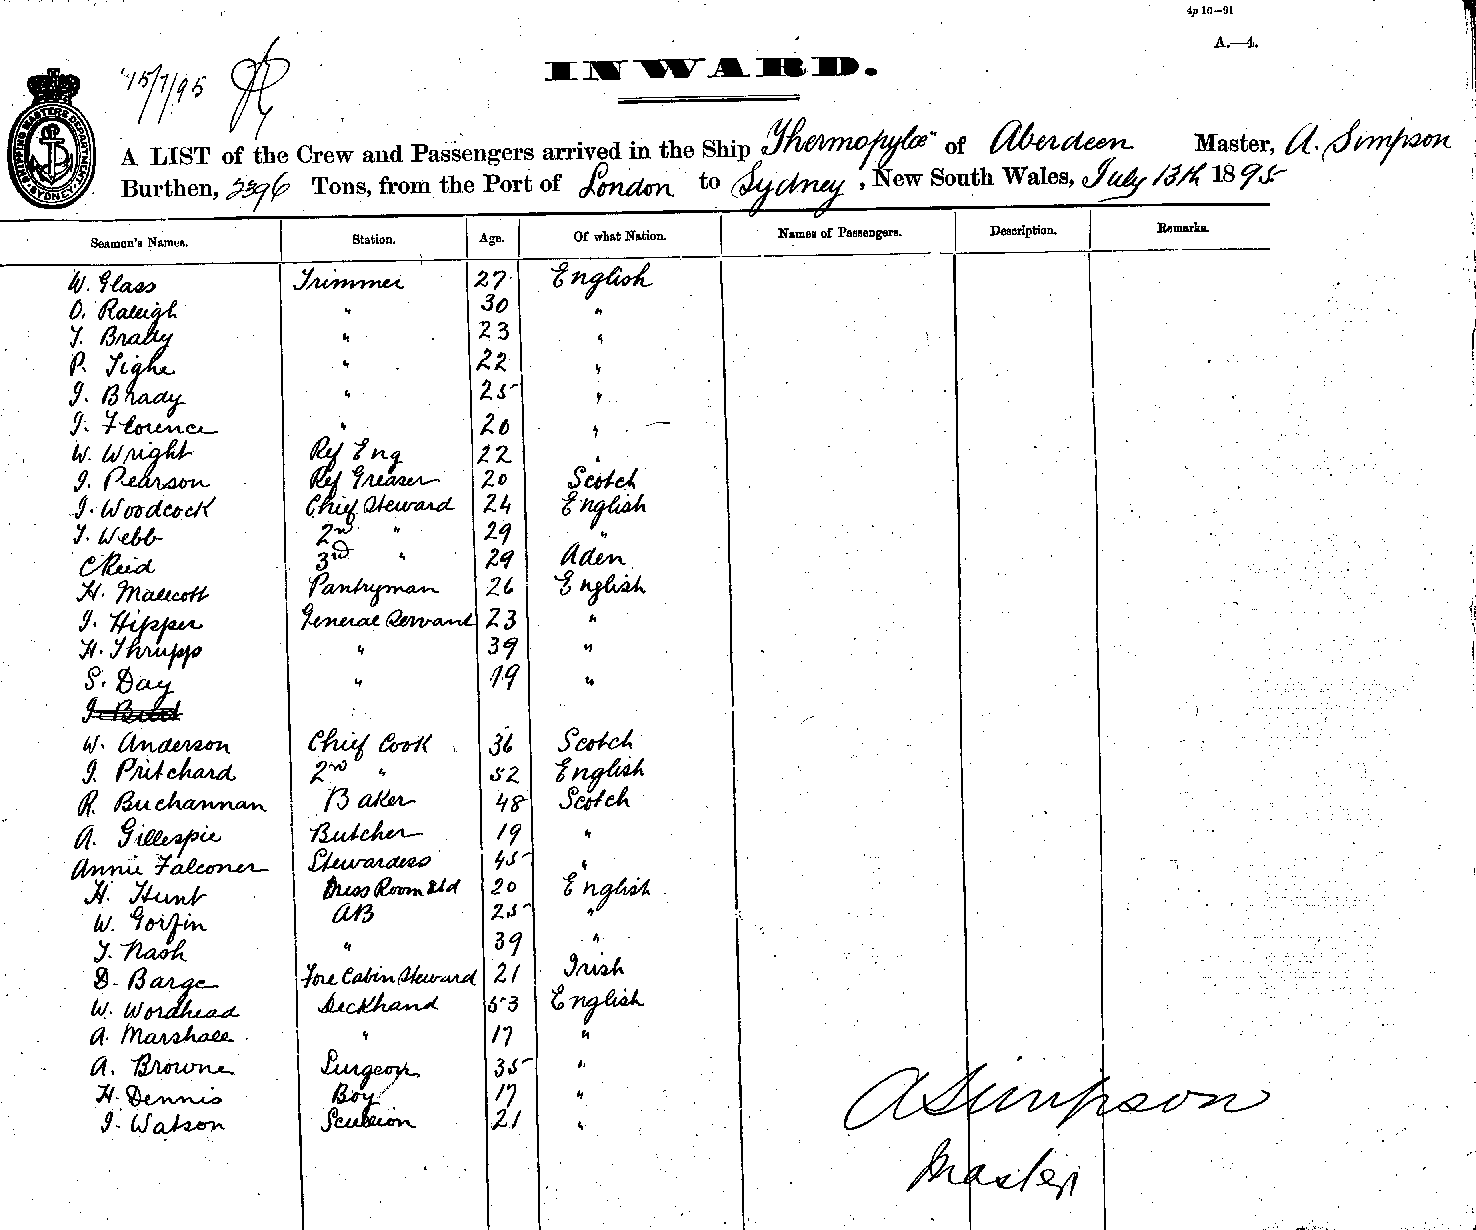 4p 10—91
A.—4.
15/7/95
INWARD.
SHIPPING MASTERS DEPARTMENT SYDNEY
A LIST of the Crew and Passengers arrived in the Ship "Thermopylæ" of Aberdeen Master, A. Simpson
Burthen, 2396 Tons, from the Port of London to Sydney, New South Wales, July 13th 1895
Seamen's Names. Station. Age. Of what Nation. Names of Passengers. Description. Remarks.
W. Glass Trimmer 27 English
O. Raleigh " 30 "
T. Brady " 23 "
P. Tighe " 22 "
J. Brady " 25 "
J. Florence " 20 "
W. Wright Ref Eng 22 "
J. Pearson Ref Greaser 20 Scotch
J. Woodcock Chief Steward 24 English
T. Webb 2nd " 29 "
C Reid 3rd " 29 Aden
H. Mallcott Pantryman 26 English
J. Hipper General Servant 23 "
H. Thrupp " 39 "
S. Day " 19 "
W. Anderson Chief Cook 36 Scotch
J. Pritchard 2nd " 52 English
R. Buchannan Baker 48 Scotch
A. Gillespie Butcher 19 "
Annie Falconer Stewardess 45 "
H. Hunt Mess Room Std 20 English
W. Gorfin AB 25 "
T. Nash " 39 "
D. Barge Fore Cabin Steward 21 Irish
W. Wordhead Deckhand 53 English
A. Marshall " 17 "
A. Browne Surgeon 35 "
H. Dennis Boy 17 "
J. Watson Scullion 21 "
A Simpson
Master